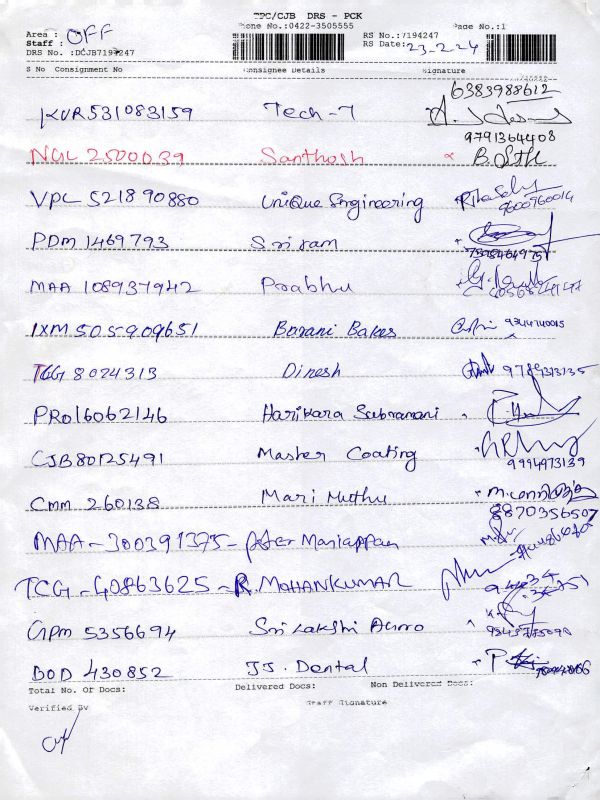 TPC/CJB DRS - PCK
Phone No.:0422-3505555 Page No.:1
Area : OFF RS No.:7194247
Staff : RS Date: 23-2-24
DRS No. :DCJB7197247
S No Consignment No Consignee Details Signature
6383988612
KUR531083159 Tech-7
9791364408
NGL 2500039 Santhosh B.
VPL 521890880 Unique Engineering 9600760014
PDM 1469793 Sriram
MAA 108937942 Prabhu
IXM 505909651 Barani Bakes 9344740015
TGG 8024313 Dinesh 9789313135
PRO16062146 Harikara Subramani
CJB80125491 Master Coating
9994973139
CMM 260138 Mari Muthu
8870356507
MAA-300391375- Peter Mariappan
TCG-40863625- R. MOHANKUMAR
GPM 5356694 Sri Lakshi Auro
BOD 430852 JJ. Dental
Total No. Of Docs: Delivered Docs: Non Delivered Docs:
Verified By Staff Signature